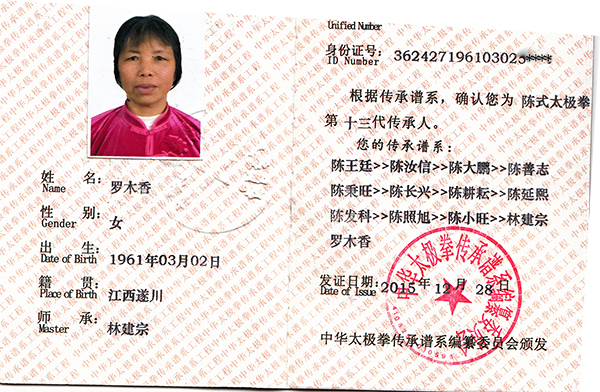 Unified Number
身份证号：
ID Number
362427196103025****
根据传承谱系，确认您为 陈式太极拳
第 十三代传承人。
您的传承谱系：
陈王廷>>陈汝信>>陈大鹏>>陈善志
陈秉旺>>陈长兴>>陈耕耘>>陈延熙
陈发科>>陈照旭>>陈小旺>>林建宗
罗木香
发证日期：
Date of Issue
2015年 12月 28日
中华太极拳传承谱系编纂委员会颁发
中华太极拳传承谱系编纂委员会
姓 名：
Name
罗木香
性 别：
Gender
女
出 生：
Date of Birth
1961年03月02日
籍 贯：
Place of Birth
江西遂川
师 承：
Master
林建宗